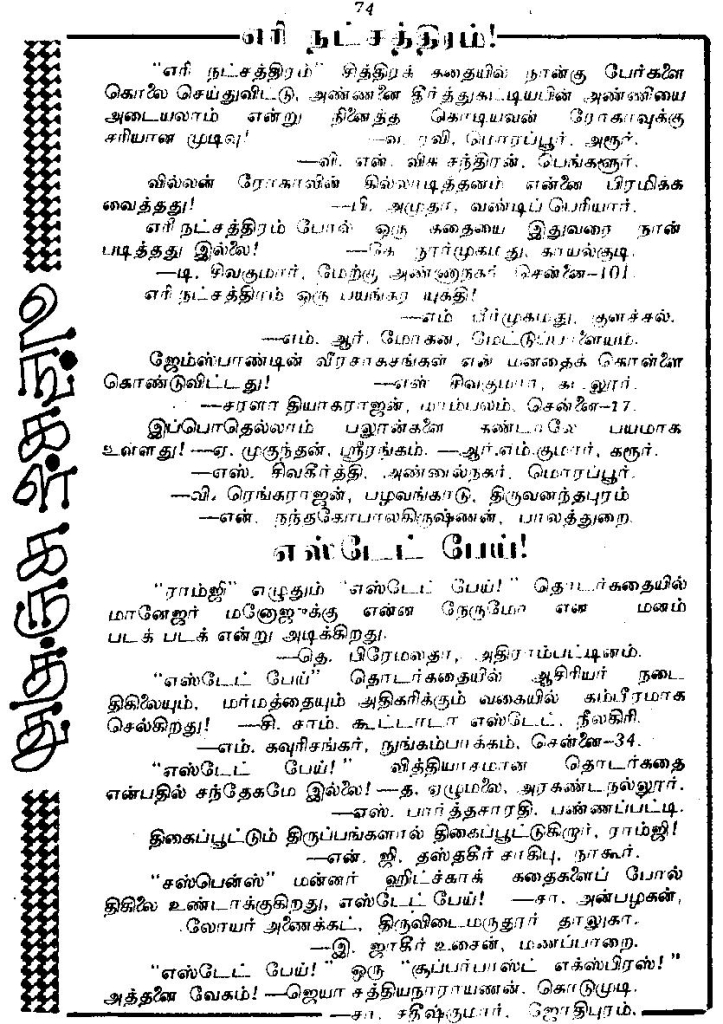 74
எரி நட்சத்திரம்!
"எரி நட்சத்திரம்" சித்திரக் கதையில் நான்கு பேர்களை
கொலை செய்துவிட்டு, அண்ணனை தீர்த்துகட்டியபின் அண்ணியை
அடையலாம் என்று நினைத்த கொடியவன் ரோகாவுக்கு
சரியான முடிவு! ரவி, மொரப்பூர். அரூர்.
—வி. என். சந்திரன், பெங்களூர்.
வில்லன் ரோகாவின் கில்லாடித்தனம் என்னை பிரமிக்க
வைத்தது! —பி. அமுதா, வண்டிப் பெரியார்.
எரி நட்சத்திரம் போல் ஒரு கதையை இதுவரை நான்
படித்தது இல்லை! நூர்முகமது, காயல்குடி.
—டி. சிவகுமார், மேற்கு அண்ணாநகர் சென்னை-101.
எரி நட்சத்திரம் ஒரு பயங்கர யுக்தி!
—எம் பீர்முகமது, குளச்சல்.
—எம். ஆர். மோகன், மேட்டுப்பாளையம்.
ஜேம்ஸ்பாண்டின் வீரசாகசங்கள் என் மனதைக் கொள்ளை
கொண்டுவிட்டது! —எஸ் சிவகுமார்,
—சரளா தியாகராஜன், மாம்பலம், சென்னை-17.
இப்பொதெல்லாம் பலூன்களை கண்டாலே பயமாக
உள்ளது! —ஏ. முகுந்தன், ஸ்ரீரங்கம். —ஆர்.எம்.குமார், கரூர்.
—எஸ். சிவகீர்த்தி, மொரப்பூர்.
—வி. ரெங்கராஜன், பழவங்காடு, திருவனந்தபுரம்
—என். நந்தகோபாலகிருஷ்ணன், பாலத்துறை.
எஸ்டேட் பேய்!
"ராம்ஜி" எழுதும் "எஸ்டேட் பேய்!" தொடர்கதையில்
மானேஜர் மனோஜுக்கு என்ன நேருமோ என மனம்
படக் படக் என்று அடிக்கிறது.
—தெ. பிரேமலதா, அதிராம்பட்டினம்.
"எஸ்டேட் பேய்" தொடர்கதையில் ஆசிரியர் நடை
திகிலையும், மர்மத்தையும் அதிகரிக்கும் வகையில் கம்பீரமாக
செல்கிறது! —சி. சாம். கூட்டாடா எஸ்டேட். நீலகிரி.
—எம். கவுரிசங்கர், நுங்கம்பாக்கம், சென்னை-34.
"எஸ்டேட் பேய்!" வித்தியாசமான தொடர்கதை
என்பதில் சந்தேகமே இல்லை! —த. ஏழுமலை, அரகண்டநல்லூர்.
—எஸ். பார்த்தசாரதி. பண்ணப்பட்டி.
திகைப்பூட்டும் திருப்பங்களால் திகைப்பூட்டுகிறார், ராம்ஜி!
—என். ஜி. தஸ்தகீர் சாகிபு, நாகூர்.
"சஸ்பென்ஸ்" மன்னர் ஹிட்ச்காக் கதைகளைப் போல்
திகிலை உண்டாக்குகிறது, எஸ்டேட் பேய்! —சா. அன்பழகன்,
லோயர் அணைக்கட், திருவிடைமருதூர் தாலுகா.
—இ. ஜாகீர் உசைன், மணப்பாறை.
"எஸ்டேட் பேய்!" ஒரு "சூப்பர்பாஸ்ட் எக்ஸ்பிரஸ்!"
அத்தனை வேகம்! —ஜெயா சத்தியநாராயணன். கொடுமுடி.
—சா. சதீஷ்குமார். ஜோதிபுரம்.
உங்கள் கருத்து